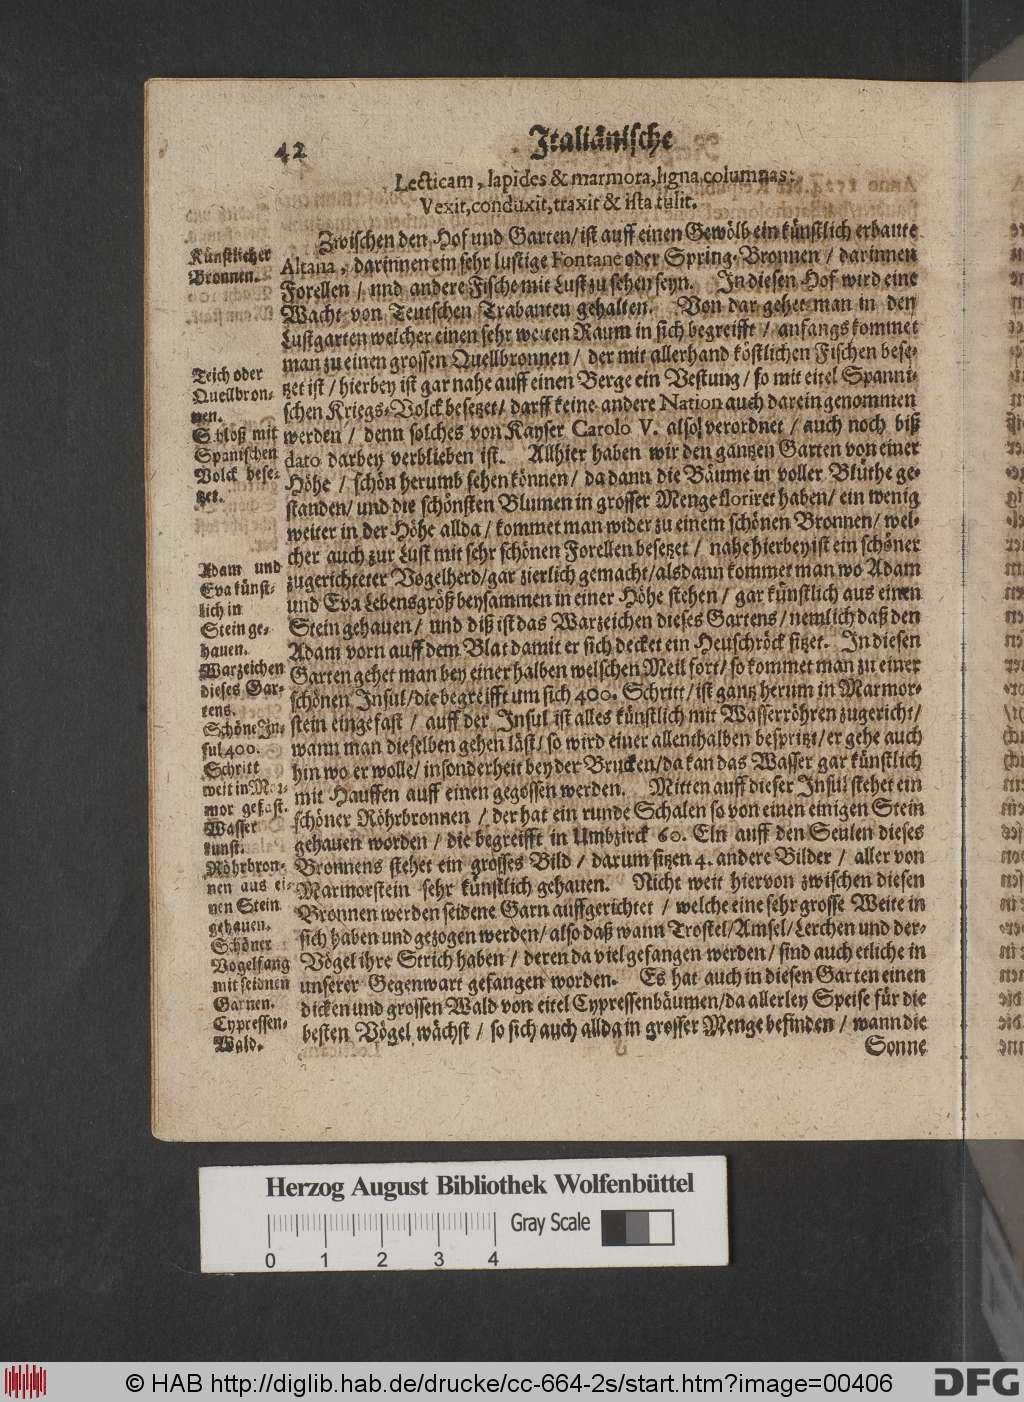 42
Italiänische
Lecticam, lapides & marmora, ligna, columnas:
Vexit, conduxit, traxit & ista tulit.
Zwischen den Hof und Garten/ ist auff einen Gewölb ein künstlich erbaute
Altana, darinnen ein sehr lustige Fontane oder Spring-Bronnen / darinnen
Forellen / und andere Fische mit Lust zu sehen seyn. In diesen Hof wird eine
Wacht von Teutschen Trabanten gehalten. Von dar gehet man in den
Lustgarten welcher einen sehr weiten Raum in sich begreifft / anfangs kommet
man zu einen grossen Quellbronnen / der mit allerhand köstlichen Fischen bese-
tzet ist / hierbey ist gar nahe auff einen Berge ein Vestung / so mit eitel Spanni-
schen Kriegs-Volck besetzet/ darff keine andere Nation auch darein genommen
werden / denn solches von Kayser Carolo V. also verordnet / auch noch biß
dato darbey verblieben ist. Allhier haben wir den gantzen Garten von einer
Höhe / schön herumb sehen können / da dann die Bäume in voller Blüthe ge-
standen/ und die schönsten Blumen in grosser Menge floriret haben/ ein wenig
weiter in der Höhe allda / kommet man wider zu einem schönen Bronnen/ wel-
cher auch zur Lust mit sehr schönen Forellen besetzet / nahe hierbey ist ein schöner
zugerichteter Vogelherd/gar zierlich gemacht/alsdann kommet man wo Adam
und Eva Lebensgröß beysammen in einer Höhe stehen / gar künstlich aus einen
Stein gehauen/ und diß ist das Warzeichen dieses Gartens/ nemlich daß den
Adam vorn auff dem Blat damit er sich decket ein Heuschröck sitzet. In diesen
Garten gehet man bey einer halben welschen Meil fort/ so kommet man zu einer
schönen Insul/die begreifft um sich 400. Schritt/ ist gantz herum in Marmor-
stein eingefast / auff der Insul ist alles künstlich mit Wasserröhren zugericht/
wann man dieselben gehen läst/ so wird einer allenthalben bespritzt/er gehe auch
hin wo er wolle/ insonderheit bey der Brucken/da kan das Wasser gar künstlich
mit Hauffen auff einen gegossen werden. Mitten auff dieser Insul stehet ein
schöner Röhrbronnen / der hat ein runde Schalen so von einen einigen Stein
gehauen worden / die begreifft in Umbzirck 60. Eln auff den Seulen dieses
Bronnens stehet ein grosses Bild / darum sitzen 4. andere Bilder / aller von
Marmorstein sehr künstlich gehauen. Nicht weit hiervon zwischen diesen
Bronnen werden seidene Garn auffgerichtet / welche eine sehr grosse Weite in
sich haben und gezogen werden/ also daß wann Trostel/Amsel/Lerchen und der-
Vögel ihre Strich haben / deren da viel gefangen werden/ sind auch etliche in
unserer Gegenwart gefangen worden. Es hat auch in diesen Garten einen
dicken und grossen Wald von eitel Cypressenbäumen/da allerley Speise für die
besten Vögel wächst / so sich auch allda in grosser Menge befinden / wann die
Sonne
Künstlicher
Bronnen.
Teich oder
Quellbron-
nen.
Schloß mit
Spanischen
Volck bese-
tzet.
Adam und
Eva künst-
lich in
Stein ge-
hauen.
Warzeichen
dieses Gar-
tens.
Schöne In-
sul 400.
Schritt
weit in Mar-
mor gefast.
Wasser
kunst.
Röhrbron-
nen aus ei-
nen Stein
gehauen.
Schöner
Vogelfang
mit seidnen
Garnen.
Cypressen-
Wald.
Herzog August Bibliothek Wolfenbüttel
Gray Scale
0 1 2 3 4
© HAB http://diglib.hab.de/drucke/cc-664-2s/start.htm?image=00406
DFG